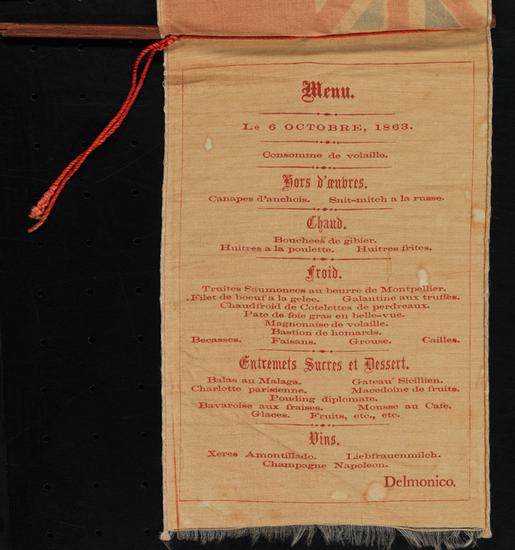 Menu.
Le 6 OCTOBRE, 1863.
Consomme de volaille.
Hors d'œuvres.
Canapes d'anchois. Snit-mitch a la russe.
Chaud.
Bouchees de gibier.
Huitres a la poulette. Huitres frites.
Froid.
Truites Saumonees au beurre de Montpellier.
Filet de boeuf a la gelee. Galantine aux truffes.
Chaudfroid de Cotelettes de perdreaux.
Pate de foie gras en belle-vue.
Magnonaise de volaille.
Bastion de homards.
Becasses. Faisans. Grouse. Cailles.
Entremets Sucres et Dessert.
Balas au Malaga. Gateau Sicillien.
Charlotte parisienne. Macedoine de fruits.
Pouding diplomate.
Bavaroise aux fraises. Mousse au Cafe.
Glaces. Fruits, etc., etc.
Vins.
Xeres Amontillado. Liebfrauenmilch.
Champagne Napoleon.
Delmonico.